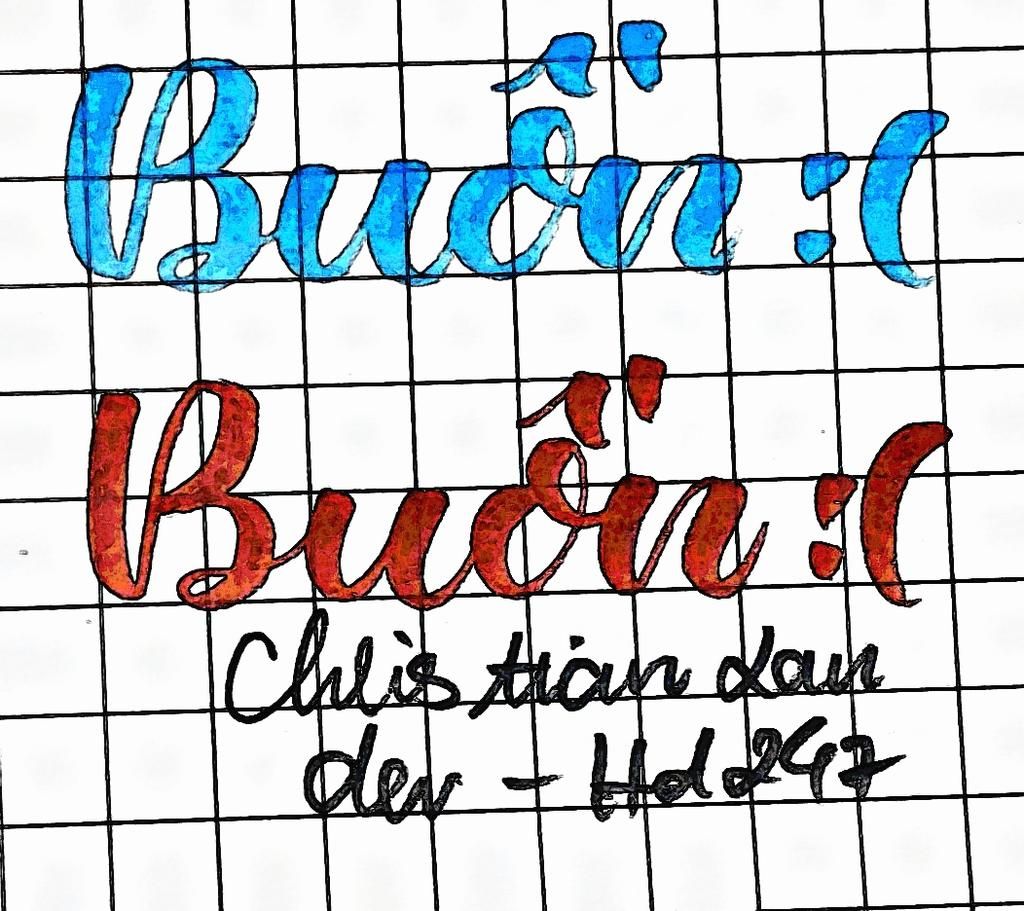 Buồn :(
Buồn :(
Christian
dev - Hd247